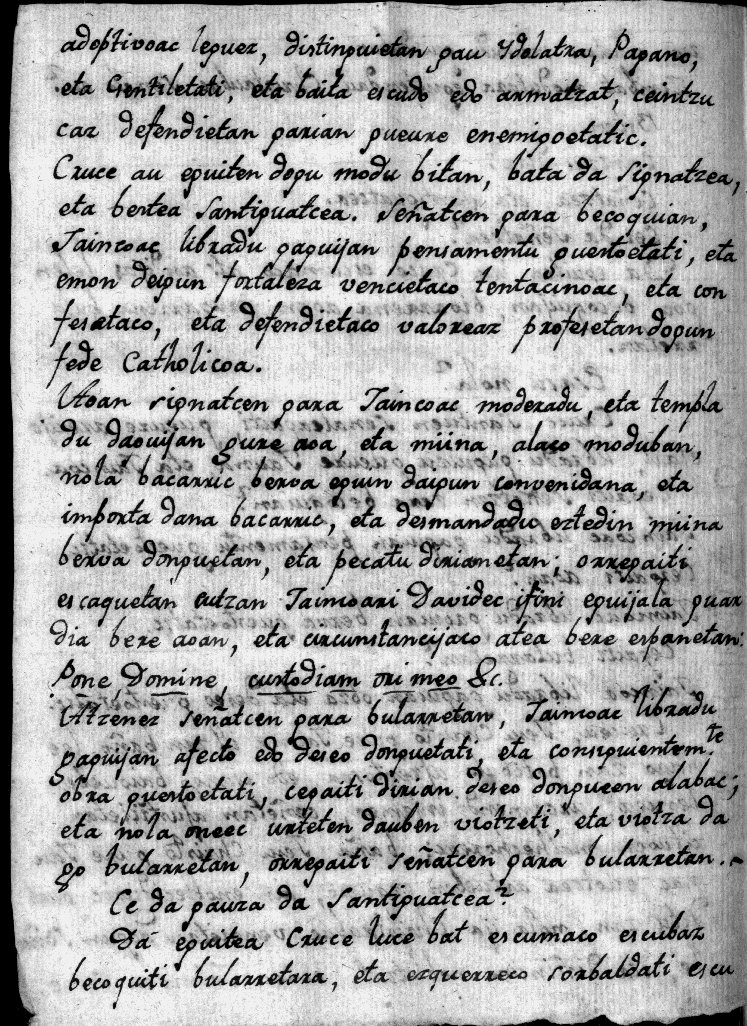 adoptivoac leguez, distinguietan gau Ydolatra, Pagano,
eta Gentiletati, eta baita escudo edo armatzat, ceintzu
caz defendietan garian gueure enemigoetatic.
Cruce au eguiten dogu modu bitan, bata da signatzea,
eta bestea santiguatcea. señatcen gara becoquian,
Jaincoac libradu gaguijan pensamentu guestoetati, eta
emon deigun fortaleza vencietaco tentacinoac, eta con
fesaetaco, eta defendietaco valoreaz profesetan dogun
fede Catholicoa.
Aoan signatcen gara Jaincoac moderadu, eta templa
du daguijan gure aoa, eta miina, alaco moduban,
nola bacarric berva eguin daigun convenidana, eta
importa dana bacarric, eta desmandadu eztedin miina
berva donguetan, eta pecatu dirianetan; orregaiti
escaquetan eutzan Jaincoari Davidec ifini eguijala guar
dia bere aoan, eta circunstancijaco atea bere espanetan:
Pone, Domine, custodiam ori meo &c.
Atzenez señatcen gara bularretan, Jaincoac libradu
gaguijan afecto edo deseo donguetati, eta consiguientem.te
obra guestoetati, cegaiti dirian deseo dongueen alabac;
eta nola oneec urteten dauben viotzeti, eta viotza da
go bularretan, orregaiti señatcen gara bularretan.
Ce da gauza da santiguatcea?
Da eguitea Cruce luce bat escumaco escubaz
becoquiti bularretara, eta ezquerreco sorbaldati escu